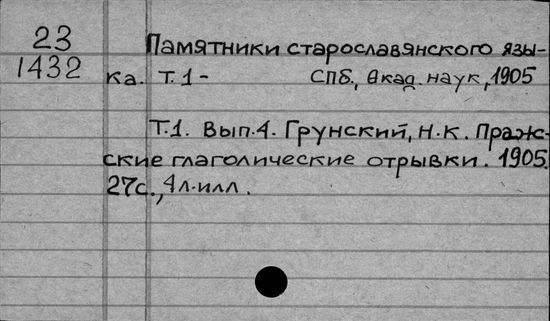 23
1432
Памятники старославянского язы-
ка. Т.1- СПб., Акад. наук, 1905
Т.1. Вып.4. Грунский, Н.К. Пражс-
ские глаголические отрывки. 1905.
27с., 4 л.илл.